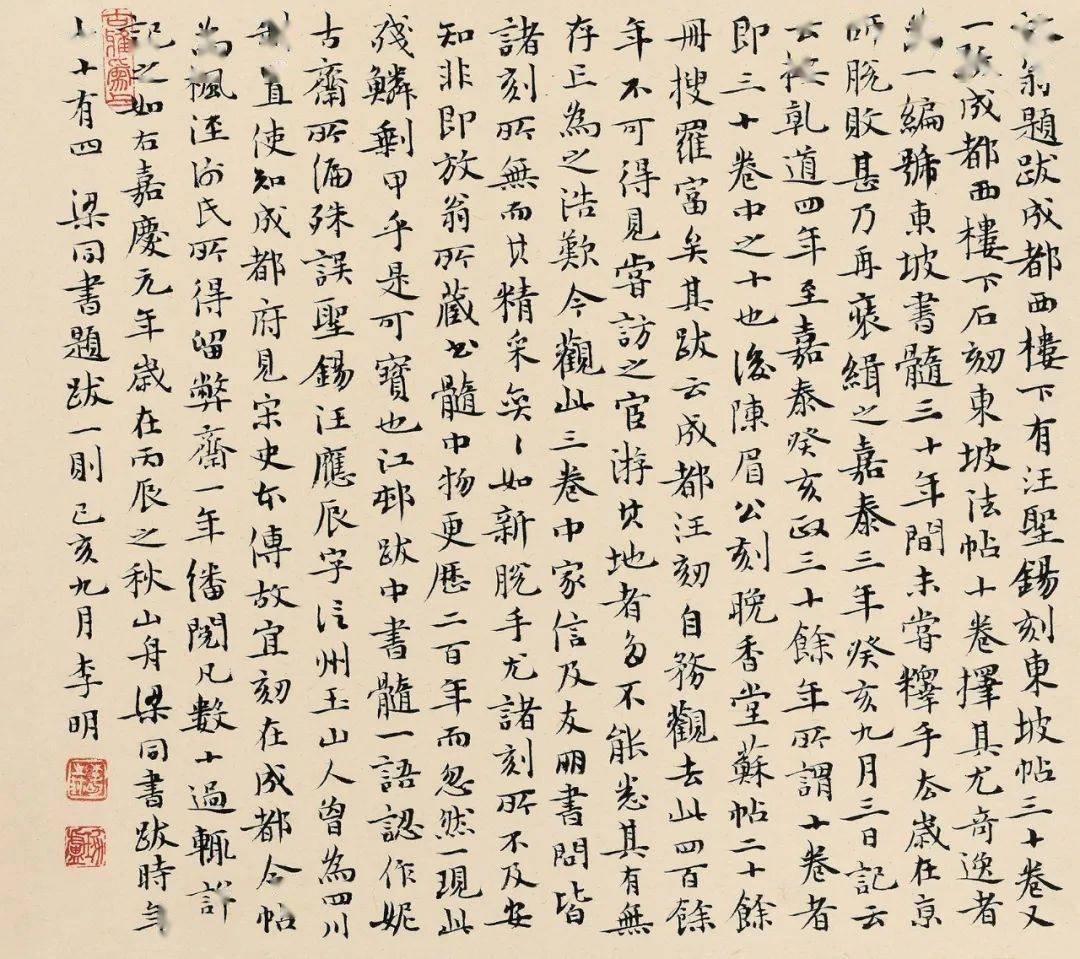 翁題跋成都西樓下有汪聖錫刻東坡帖三十卷又
一跋成都西樓下石刻東坡法帖十卷擇其尤奇逸者
為一編號東坡書髓三十年間未嘗釋手去歲在京
師脫敗甚乃再褒緝之嘉泰三年癸亥九月三日記云
云按乾道四年至嘉泰癸亥政三十餘年所謂十卷者
即三十卷中之十也後陳眉公刻晚香堂蘇帖二十餘
冊搜羅富矣其跋云成都汪刻自務觀去此四百餘
年不可得見嘗訪之宦游其地者多不能悉其有無
存亡為之浩歎今觀此三卷中家信及友朋書問皆
諸刻所無而其精采奕々如新脫手尤諸刻所不及安
知非即放翁所藏書髓中物更歷二百年而忽然一現此
殘鱗剩甲乎是可寶也江邨跋中書髓一語認作妮
古齋所編殊誤聖錫汪應辰字信州玉山人曾為四川
制置使知成都府見宋史本傳故宜刻在成都今帖
為楓涇謝氏所得留弊齋一年繙閱凡數十過輒許
記之如右嘉慶元年歲在丙辰之秋山舟梁同書跋時年
七十有四 梁同書題跋一則己亥九月李明